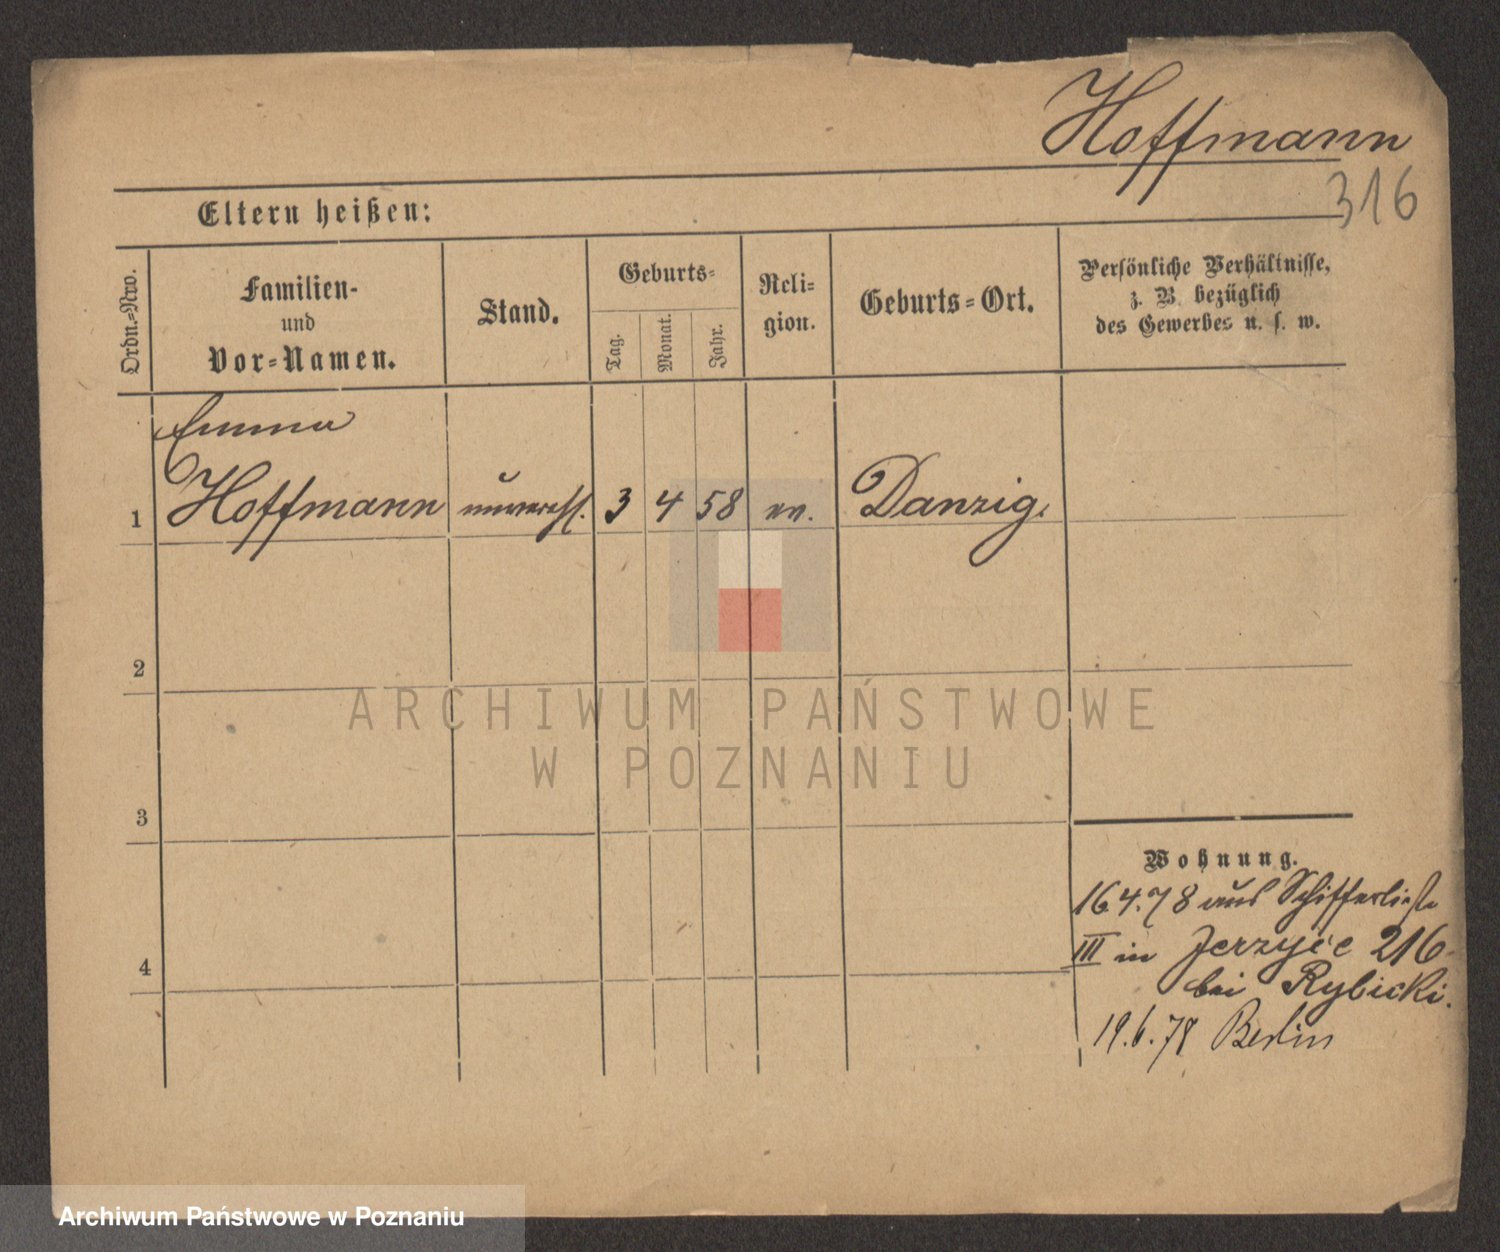 Hoffmann
316
Eltern heißen:
Ordn.=Nro.
Familien-
und
Vor=Namen.
Stand.
Geburts=
Tag.
Monat.
Jahr.
Reli=
gion.
Geburts=Ort.
Persönliche Verhältnisse,
z. B. bezüglich
des Gewerbes u. s. w.
Emma
1 Hoffmann unverehl. 3 4 58 ev. Danzig.
2
3
4
ARCHIWUM PAŃSTWOWE
W POZNANIU
Wohnung.
16.4.78 aus
III in Jerzyce 216
bei Rybicki.
19.6.78 Berlin
Archiwum Państwowe w Poznaniu